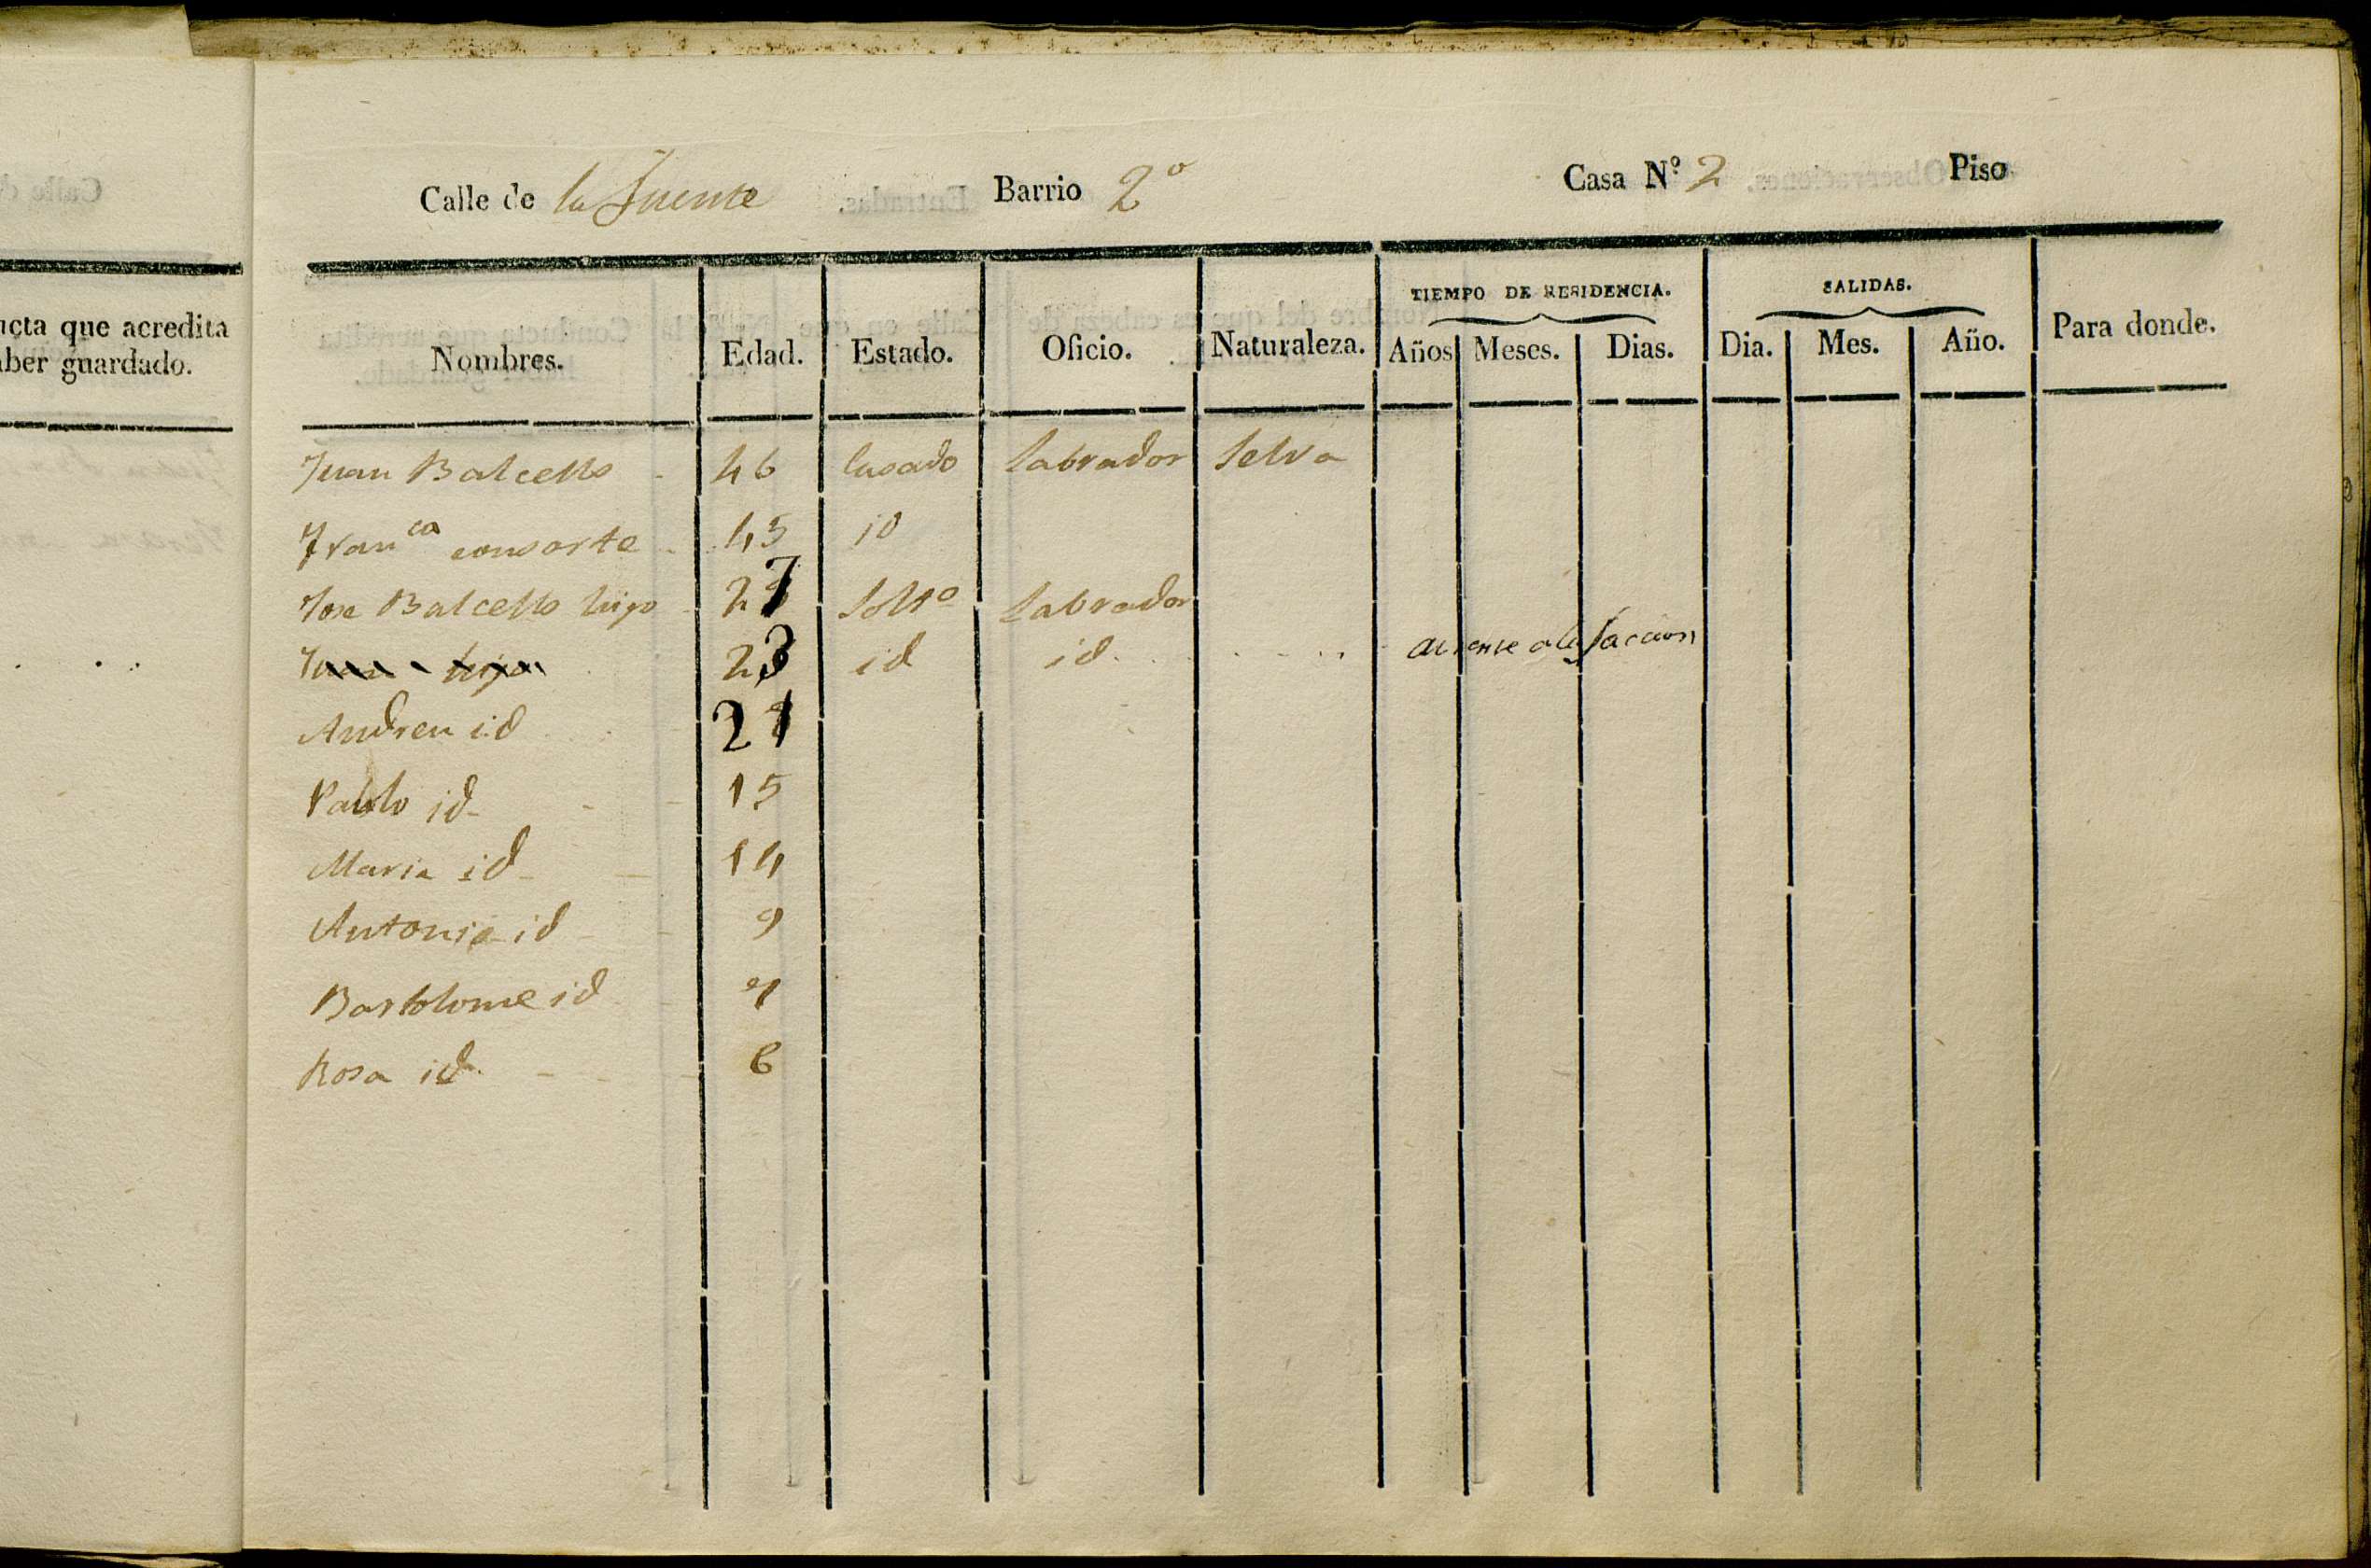 ucta que acredita
aber guardado.
Calle de la Fuente Barrio 2º Casa Nº 2 Piso
TIEMPO DE RESIDENCIA. SALIDAS.
Nombres. Edad. Estado. Oficio. Naturaleza. Años Meses. Dias. Dia. Mes. Año. Para donde.
Juan Balcells 46 Casado Labrador Selva
Franca consorte 45 id
Jose Balcells hijo 27 Solto Labrador
Juan hijo 23 id id ausente a la faccion
Andreu id 21
Pablo id 15
Maria id 14
Antonia id 9
Bartolome id 7
Rosa id 6